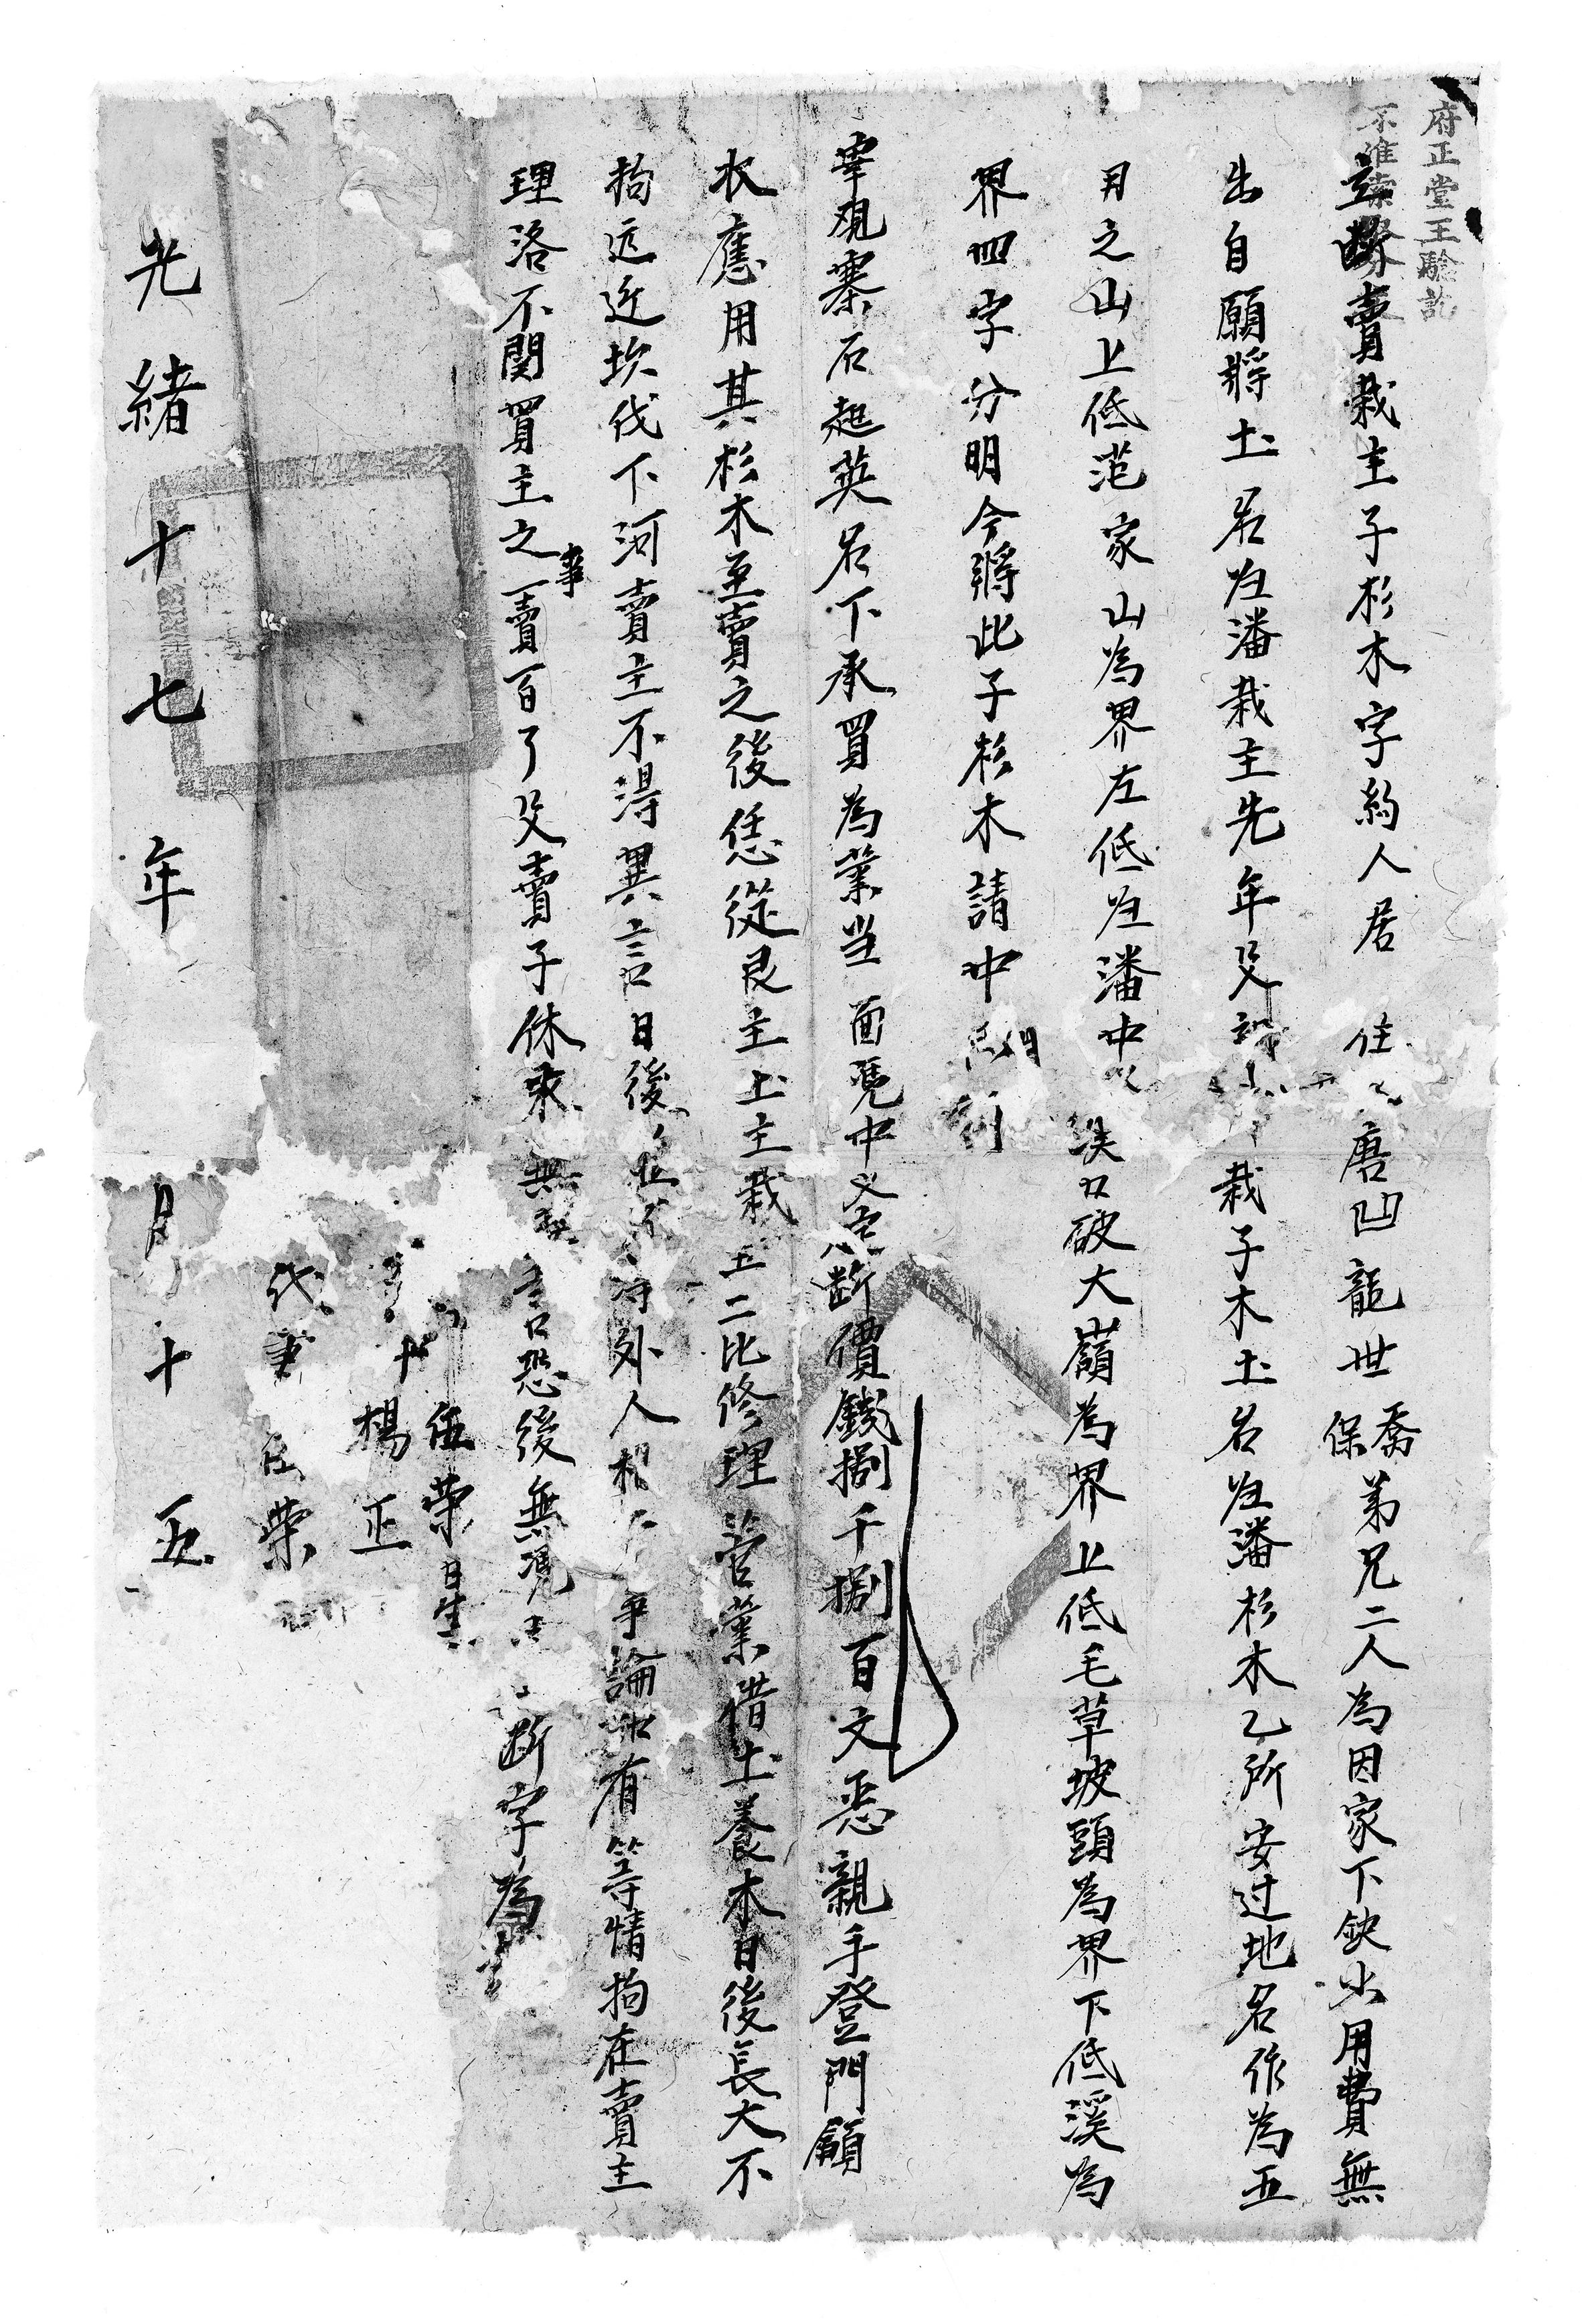 府正堂王驗訖
不准索
立斷賣栽主子杉木字約人居住唐凹龍世喬保弟兄二人為因家下缺少用費無
出自願將土名歸潘栽主先年父栽子木土名歸潘杉木乙所安过地名作為五
月之山上低范家山為界左低歸潘中破大嶺為界上低毛草坡頭為界下低溪為
界四字分明今將此子杉木請中問到
宰覌寨石起英名下承買為業当面憑中义定斷價錢捌千捌百文恶親手登門領
收應用其杉木至賣之後恁從良主土主栽五二比修理管業借土養木日後長大不
拘远近坎伐下河賣主不淂異言日後外人相爭論如有等情拘在賣主
理洛不関買主之事一賣百了父賣子休永無異言恐後無凴立斷字為
伍榮昌生
楊正
代筆伍榮
光緒十七年月十五